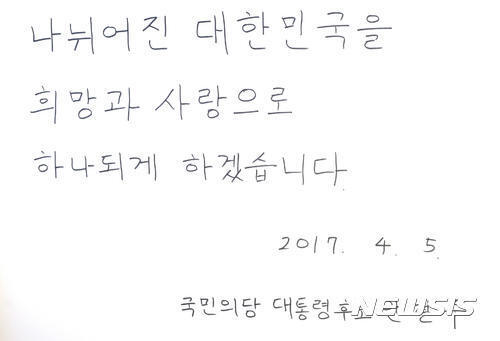 나뉘어진 대한민국을
희망과 사랑으로
하나되게 하겠습니다
2017. 4. 5.
국민의당 대통령후보
NEWSIS